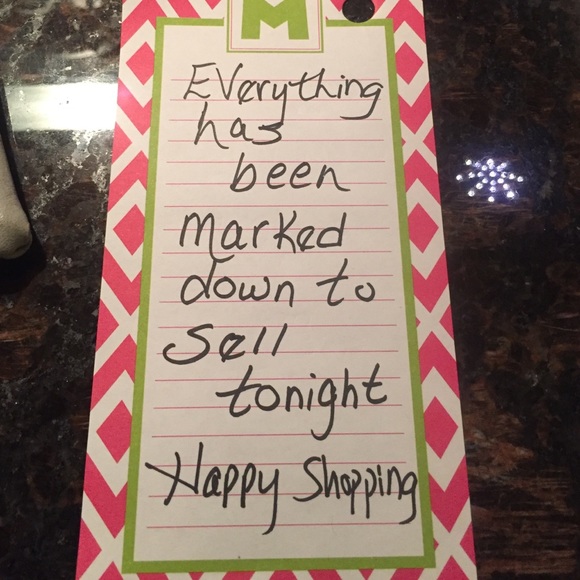 M
Everything
has
been
Marked
down to
Sell
tonight
Happy Shopping